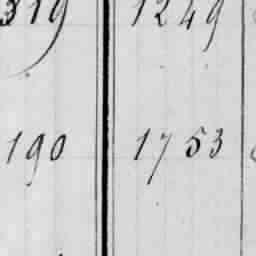 319 1249
190 1753